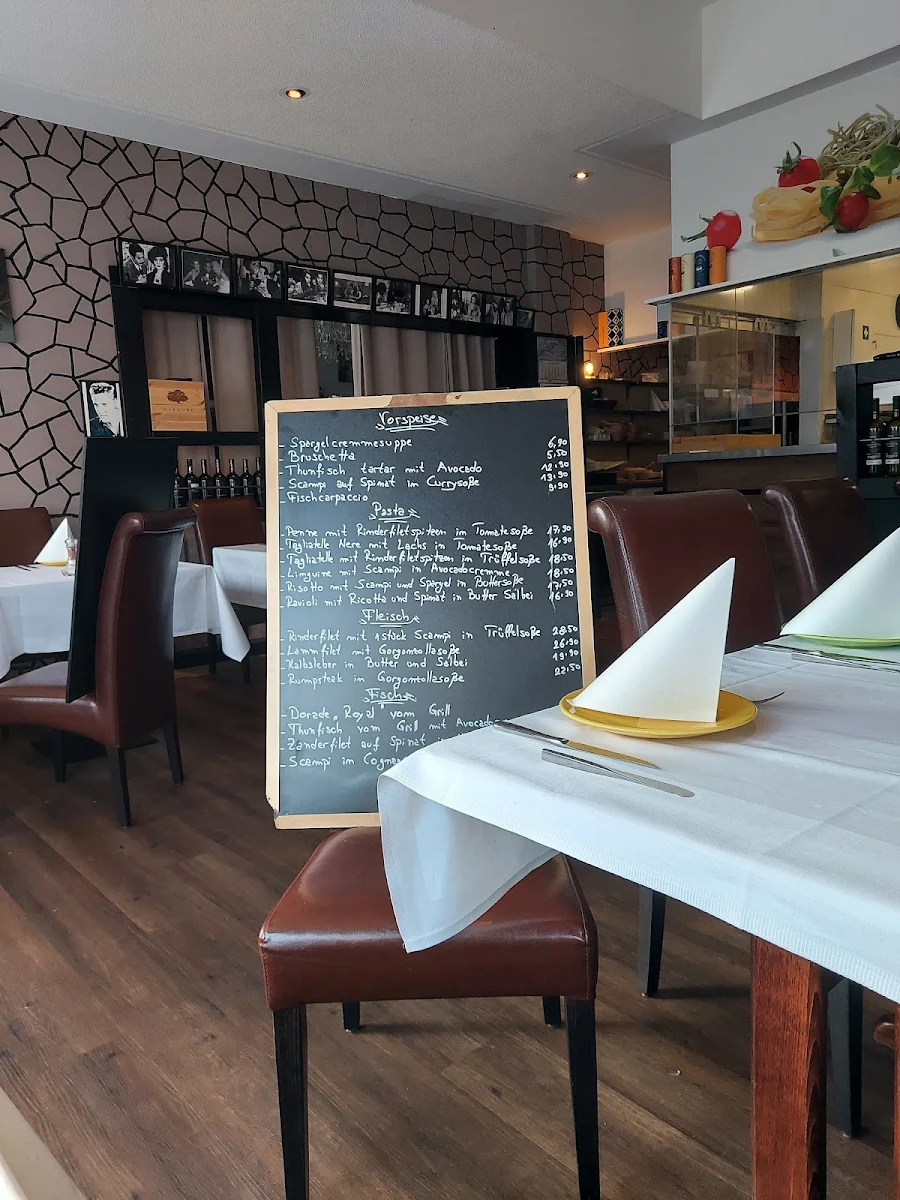 Vorspeise
- Spargelcremmesuppe 6,90
- Bruschetta 5,50
- Thunfisch tartar mit Avocado 12,90
- Scampi auf Spinat in Currysoße 13,90
- Fischcarpaccio 9,90
Pasta
- Penne mit Rinderfiletspitzen in Tomatesoße 17,90
- Tagliatelle Nere mit Lachs in Tomatesoße 16,90
- Tagliatelle mit Rinderfiletspitzen in Trüffelsoße 18,50
- Linguine mit Scampi in Avocadocremme 18,50
- Risotto mit Scampi und Spargel in Buttersoße 17,50
- Ravioli mit Ricotta und Spinat in Butter Salbei 16,90
Fleisch
- Rinderfilet mit 1 stück Scampi in Trüffelsoße 28,50
- Lammfilet mit Gorgonzollasoße 26,90
- Kalbsleber in Butter und Salbei 19,90
- Rumpsteak in Gorgonzollasoße 22,50
Fisch
- Dorade „Royal" vom Grill
- Thunfisch vom Grill mit Avocado
- Zanderfilet auf Spinat
- Scampi in Cogna